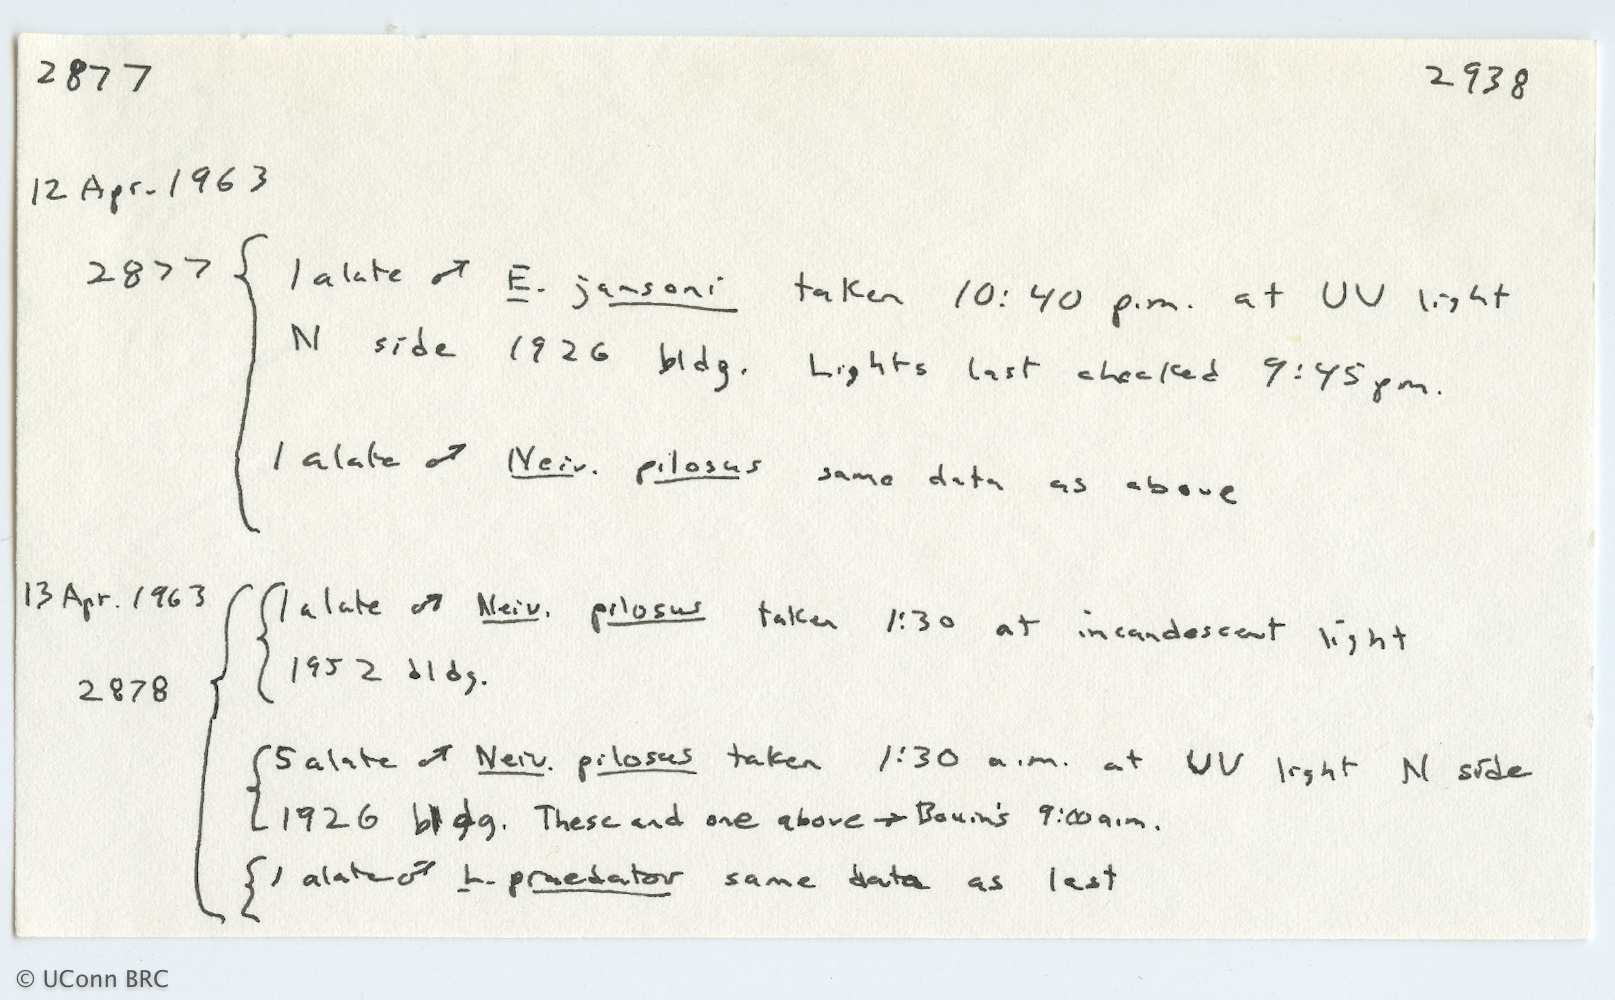 2877 2938
12 Apr. 1963
2877 { 1 alate ♂ E. jansoni taken 10:40 p.m. at UV light
N side 1926 bldg. Lights last checked 9:45 pm.
1 alate ♂ Neiv. pilosus same data as above
13 Apr. 1963 { { 1 alate ♂ Neiv. pilosus taken 1:30 at incandescent light
2878 1952 bldg.
{ 5 alate ♂ Neiv. pilosus taken 1:30 a.m. at UV light N side
1926 bldg. These and one above → Bouin's 9:00 a.m.
{ 1 alate ♂ L. praedator same data as last
© UConn BRC